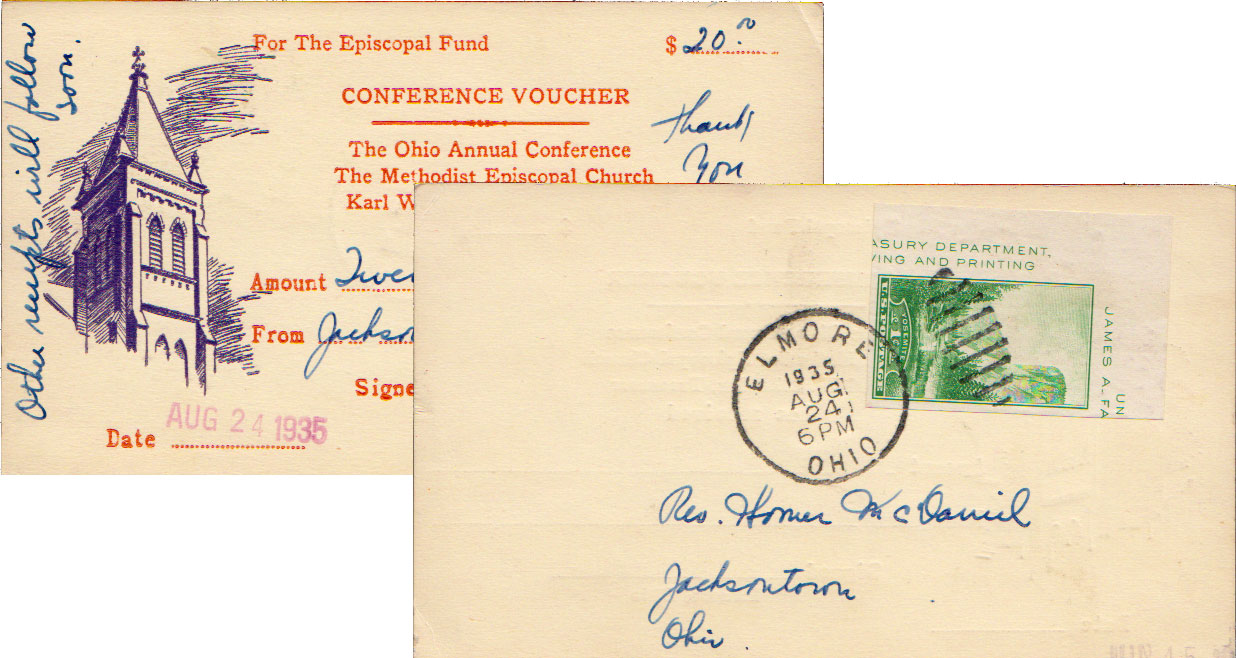 Other receipts will follow
soon.
For The Episcopal Fund
$ 20.00
CONFERENCE VOUCHER
Thank
You
The Ohio Annual Conference
The Methodist Episcopal Church
Karl W
Amount Twen
From Jackson
Signe
Date AUG 24 1935
ASURY DEPARTMENT,
VING AND PRINTING
JAMES A. FA
UN
YOSEMITE
U.S. POSTAGE
ELMORE
1935
AUG
24
6 PM
OHIO
Rev. Homer McDaniel
Jacksontown
Ohio.